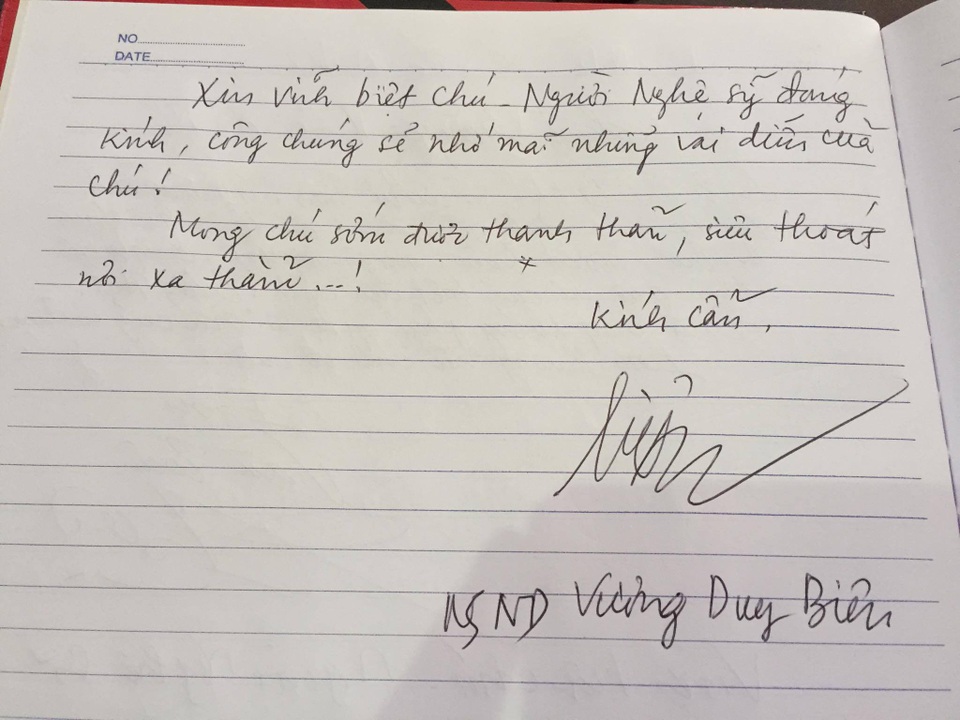 NO
DATE
Xin vĩnh biệt chú - Người Nghệ sỹ đáng
kính, công chúng sẽ nhớ mãi những vai diễn của
chú!
Mong chú sớm được thanh thản, siêu thoát
nơi xa thẳm...!
Kính cẩn,
NSND Vương Duy Biên